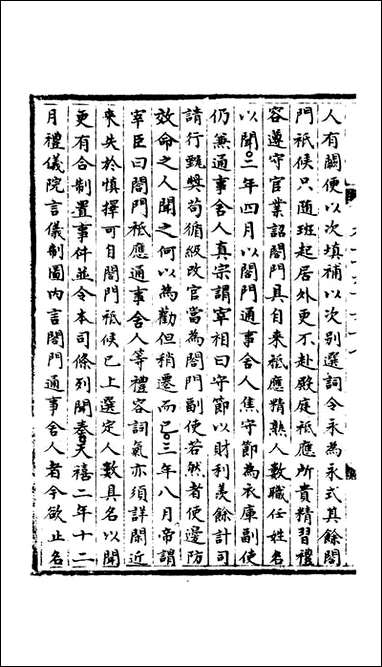 人有闕便以次填補以次別選詞令永為永式其餘閤
門祗候只隨班起居外更不赴殿庭祗應所貴精習禮
容遵守官業詔閤門具自來祗應精熟人數職任姓名
以聞○二年四月以閤門通事舍人焦守節為衣庫副使
仍兼通事舍人真宗謂宰相曰守節以財利羡餘計司
請行甄奬苟循級改官當為閤門副使若然者使邊防
效命之人聞之何以為勸但稍遷而已○三年八月帝謂
宰臣曰閤門祗應通事舍人等禮容詞氣亦須詳閑近
來失於慎擇可自閤門祗候已上選定人數具名以聞
更有合制置事件並令本司條列聞奏○天禧二年十二
月禮儀院言儀制圖內言閤門通事舍人者今欲止名